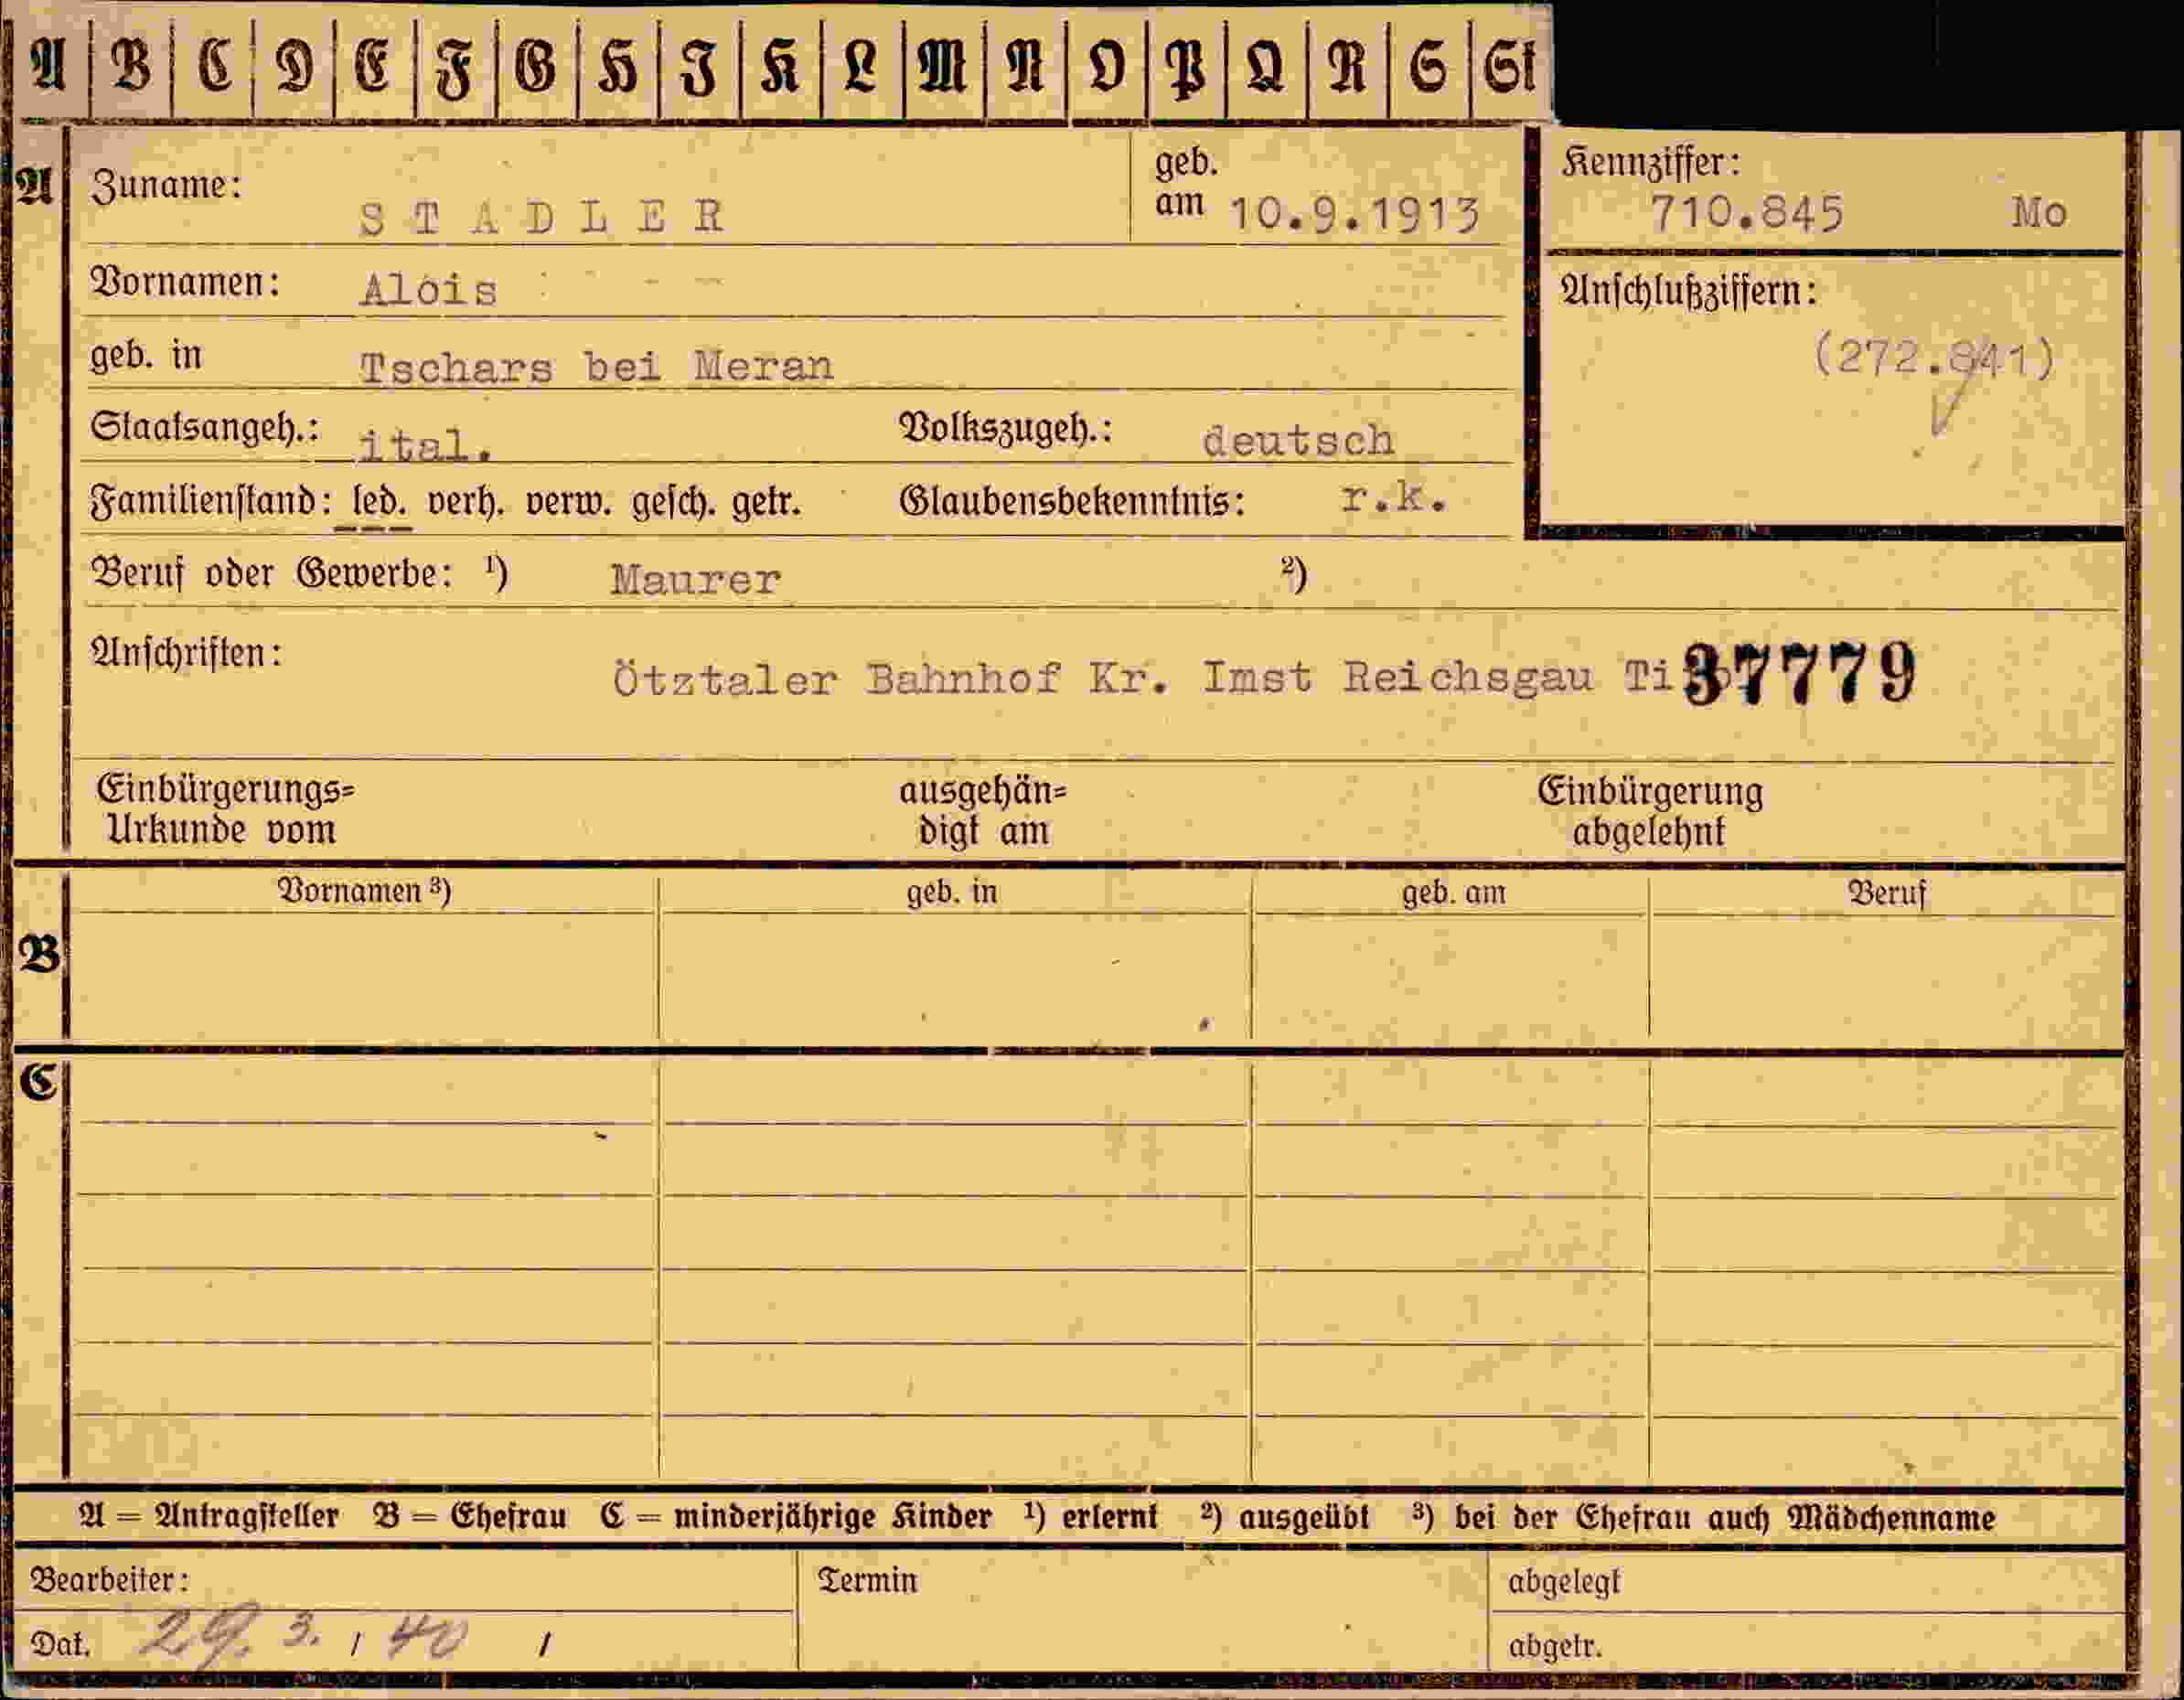 A B C D E F G H I K L M N O P Q R S St
A Zuname: STADLER geb. am 10.9.1913
Kennziffer: 710.845 Mo
Vornamen: Alois
Anschlußziffern:
(272.841)
geb. in Tschars bei Meran
Staatsangeh.: ital. Volkszugeh.: deutsch
Familienstand: led. verh. verw. gesch. getr. Glaubensbekenntnis: r.k.
Beruf oder Gewerbe: ¹) Maurer ²)
Anschriften:
Ötztaler Bahnhof Kr. Imst Reichsgau Ti 37779
Einbürgerungs=
Urkunde vom
ausgehän=
digt am
Einbürgerung
abgelehnt
Vornamen ³) geb. in geb. am Beruf
B
C
A = Antragsteller B = Ehefrau C = minderjährige Kinder ¹) erlernt ²) ausgeübt ³) bei der Ehefrau auch Mädchenname
Bearbeiter: Termin abgelegt
Dat. 29. 3. / 40 / abgetr.